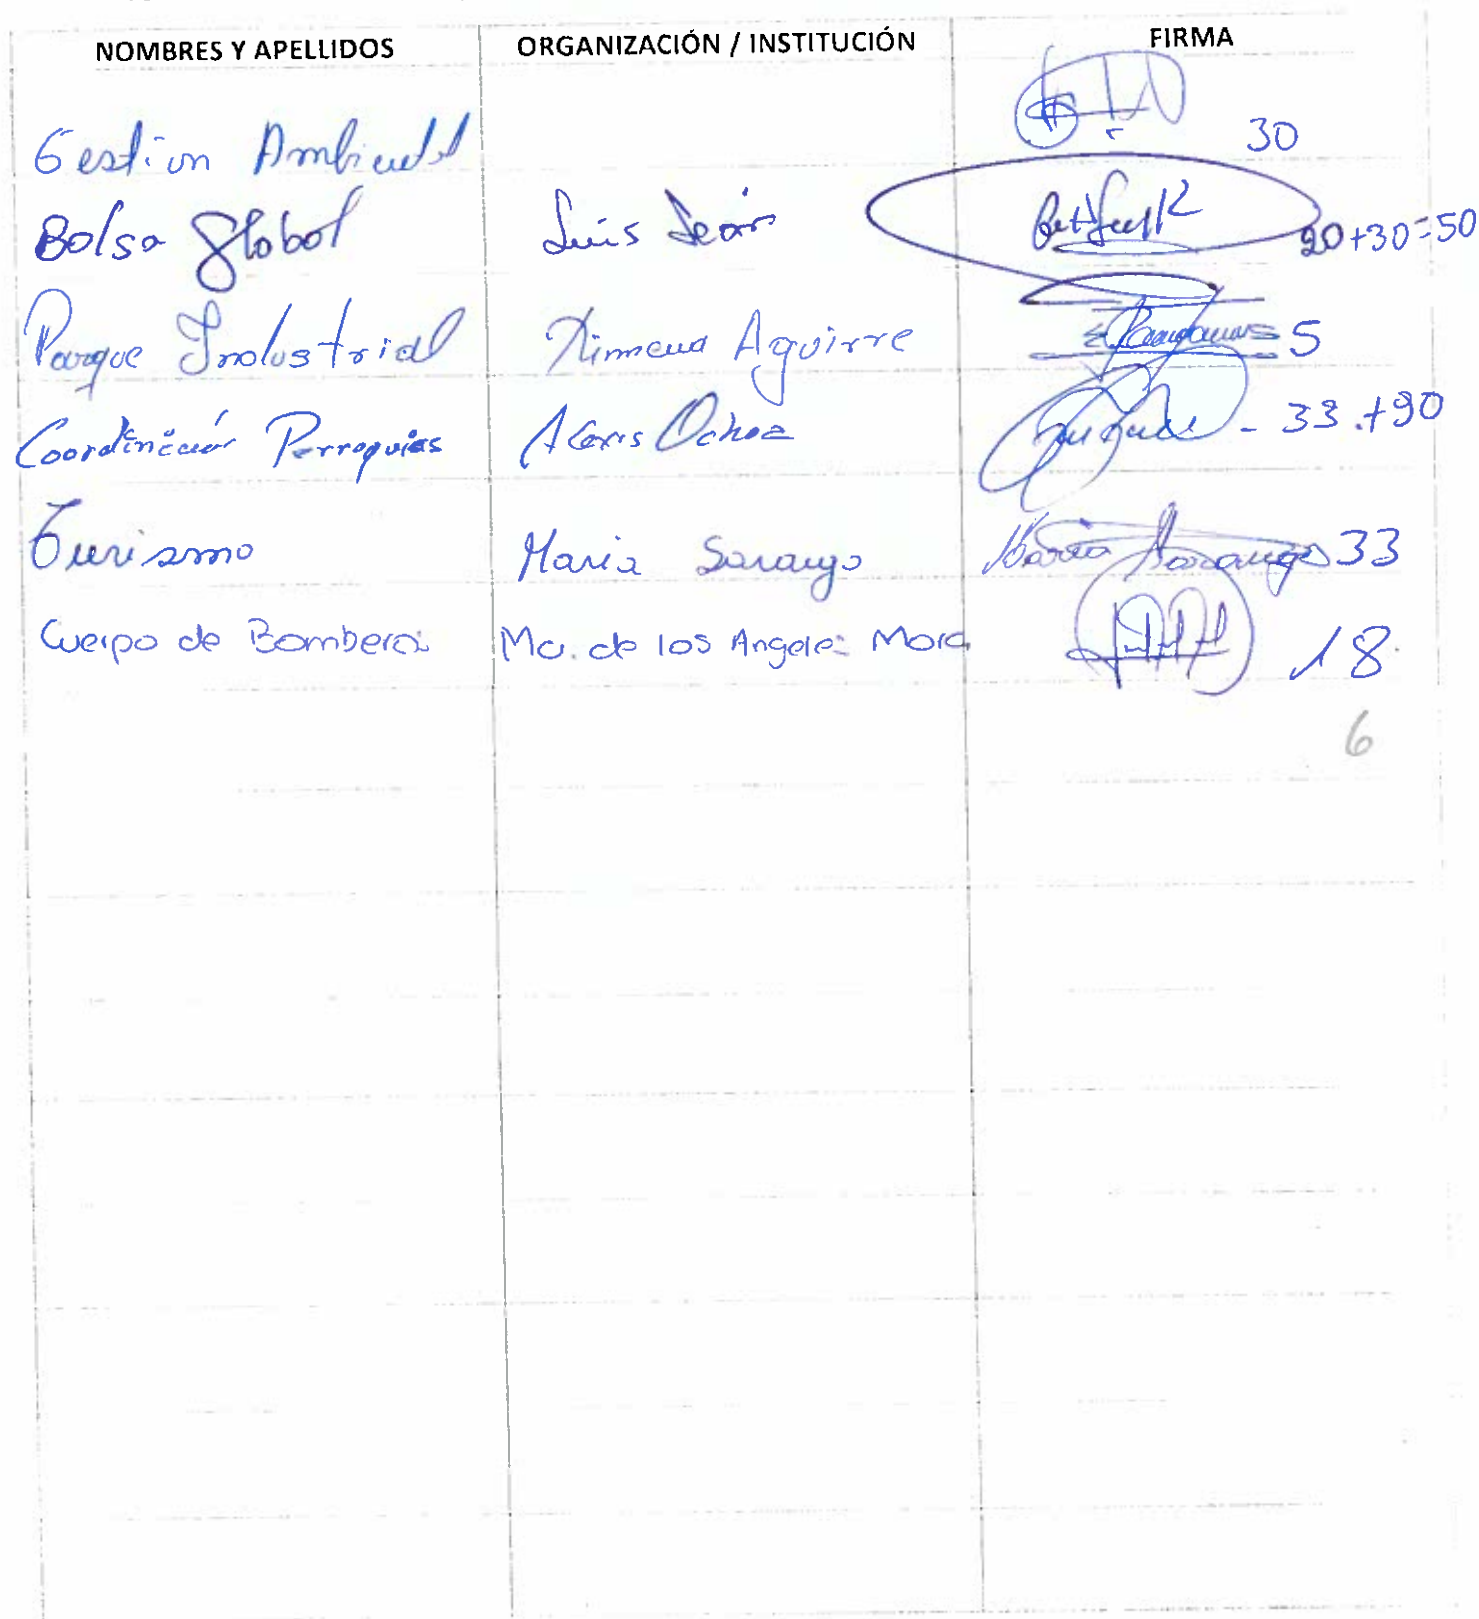 NOMBRES Y APELLIDOS ORGANIZACIÓN / INSTITUCIÓN FIRMA
Gestion Ambiental 30
Bolsa Global Luis 20+30=50
Parque Industrial Ximena Aguirre 5
Coordinación Parroquias Alexis Ochoa - 33 .+90
Turismo Maria Sarango Maria Sarango 33
Cuerpo de Bomberos Ma. de los Angeles Mora 18
6